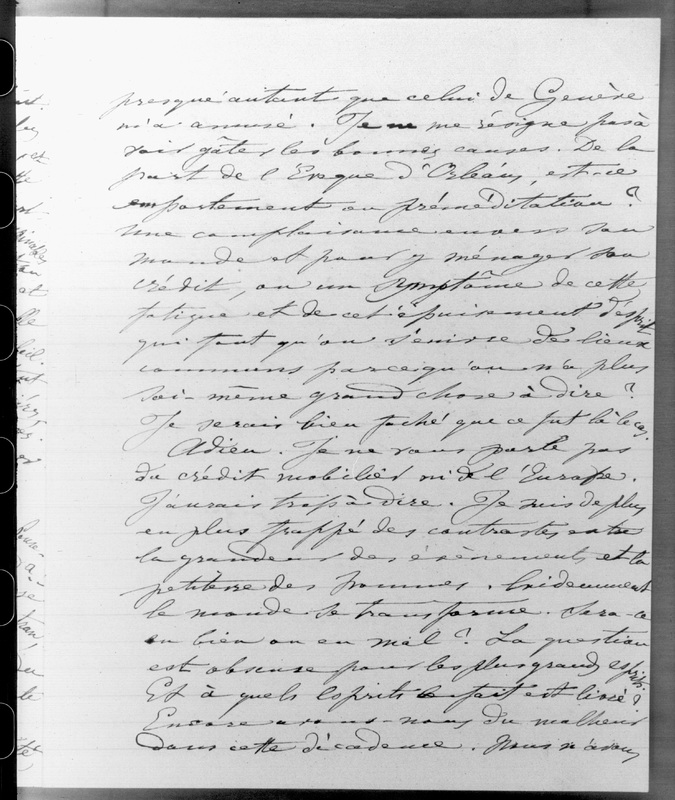 presque autant que celui de Genève
m'a amusé. Je ne me résigne pas à
voir gâter les bonnes causes. De la
part de l'Evêque d'Orléans, est-ce
emportement ou préméditation ?
Une complaisance envers son
monde et pour y ménager son
crédit, ou un symptôme de cette
fatigue et de cet épuisement d'esprit
qui fait qu'on s'enivre de lieux
communs parce qu'on n'a plus
soi-même grand chose à dire ?
Je serais bien faché que ce fut là le cas.
Adieu. Je ne vous parle pas
du crédit mobilier ni de l'Europe.
J'aurais trop à dire. Je suis de plus
en plus frappé des contrastes entre
la grandeur des évènements et la
petitesse des hommes. Evidemment
le monde se transforme. Sera-ce
en bien ou en mal ? La question
est obscure pour les plus grands esprits.
Et à quels esprits le fait est livré ?
Encore avons-nous du malheur
dans cette décadence. Nous n'avons